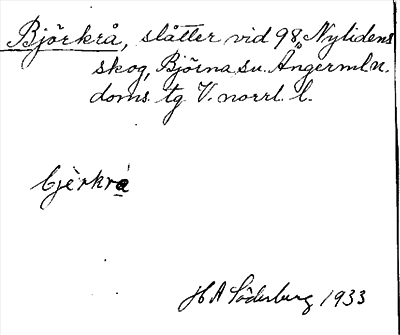 Björkrå, slåtter vid 98, Nylidens
skog, Björna sn. Ångerml. n.
doms. tg V. norrl. l.
bjèrkra
H A Söderberg 1933